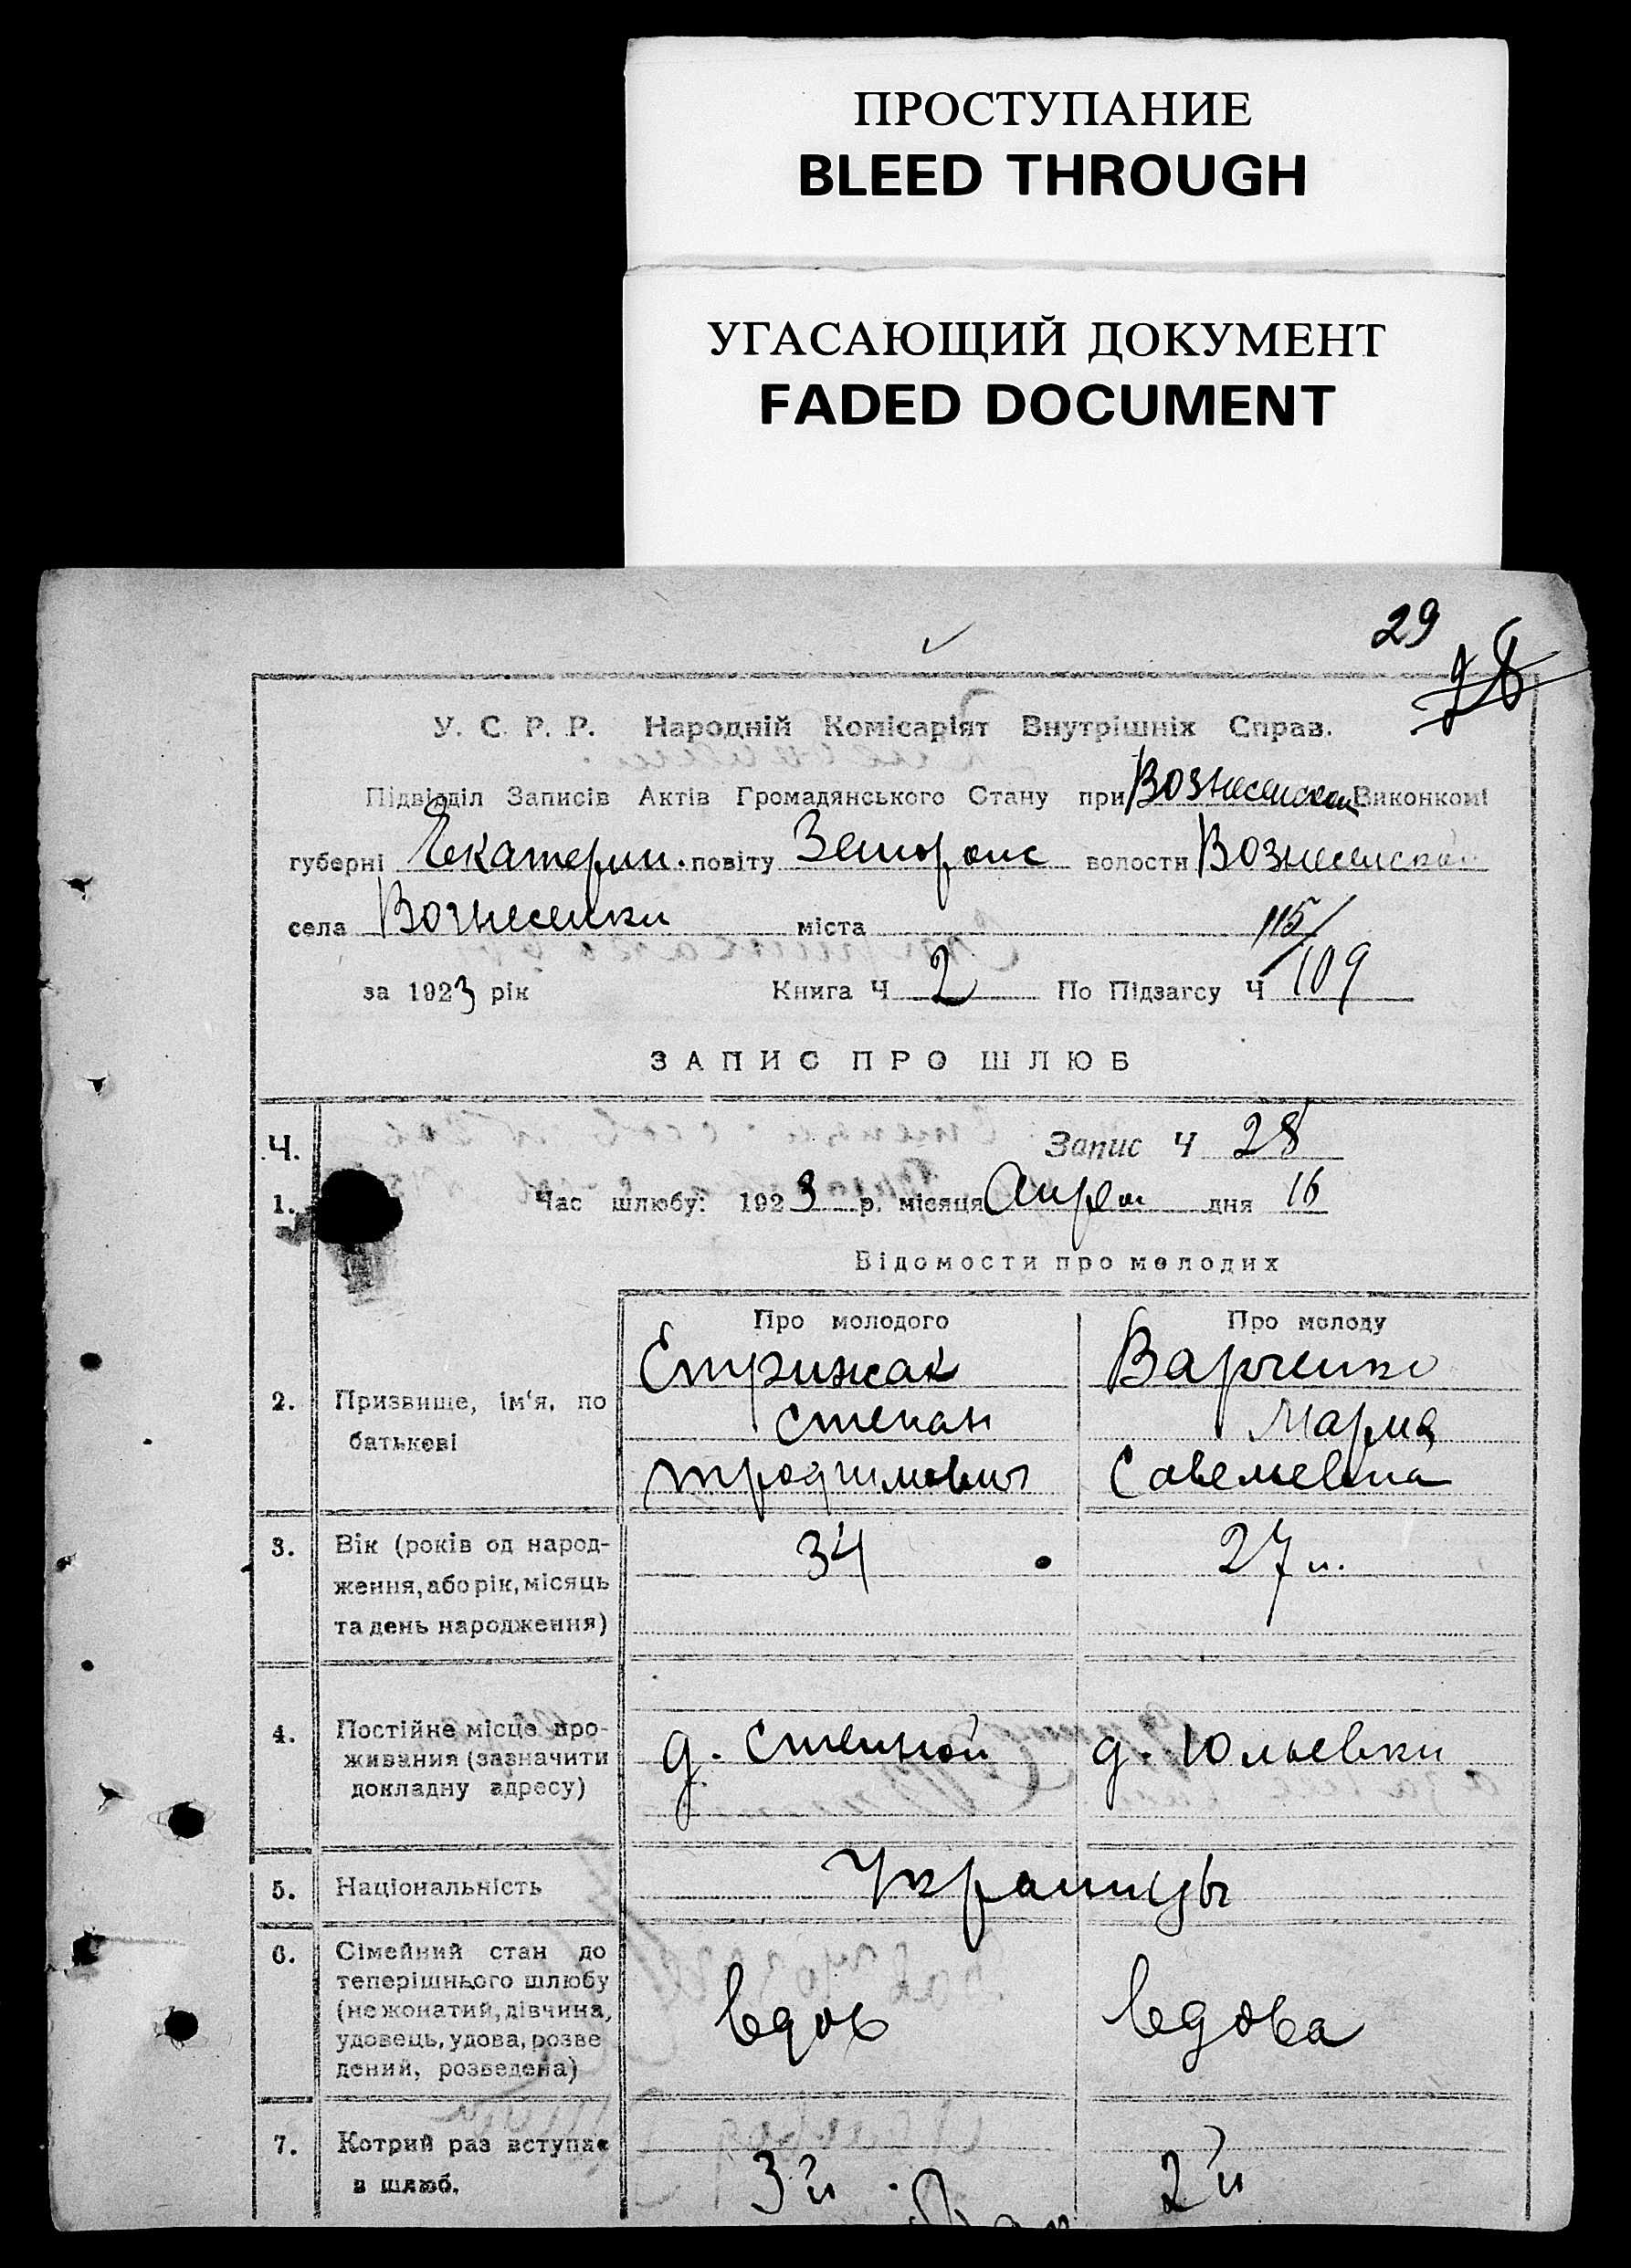 ПРОСТУПАНИЕ
BLEED THROUGH
УГАСАЮЩИЙ ДОКУМЕНТ
FADED DOCUMENT
29
28
У. С. Р. Р. Народній Комісаріят Внутрішніх Справ.
Підвідділ Записів Актів Громадянського Стану при Вознесенском Виконкомі
губерні Екатерин. повіту Запорожс волости Вознесенской
села Вознесенки міста
115/109
за 1923 рік Книга Ч 2 По Підзагсу Ч
ЗАПИС ПРО ШЛЮБ
Ч. Запис Ч 28
1. Час шлюбу: 1923 р. місяця Апрел дня 16
Відомости про молодих
Про молодого Про молоду
2. Призвище, ім'я, по батькеві
Стрижак Варченко
Степан Мария
трофимович Савельевна
3. Вік (років од народ-
ження, або рік, місяць
та день народження)
34 27 л.
4. Постійне місце про-
живання (зазначити
докладну адресу)
д. Степной д. Юльевки
5. Національність Украинцы
6. Сімейний стан до
теперішнього шлюбу
(не жонатий, дівчина,
удовець, удова, розве
дений, розведена)
вдов вдова
7. Котрий раз вступає
в шлюб.
3й 2й